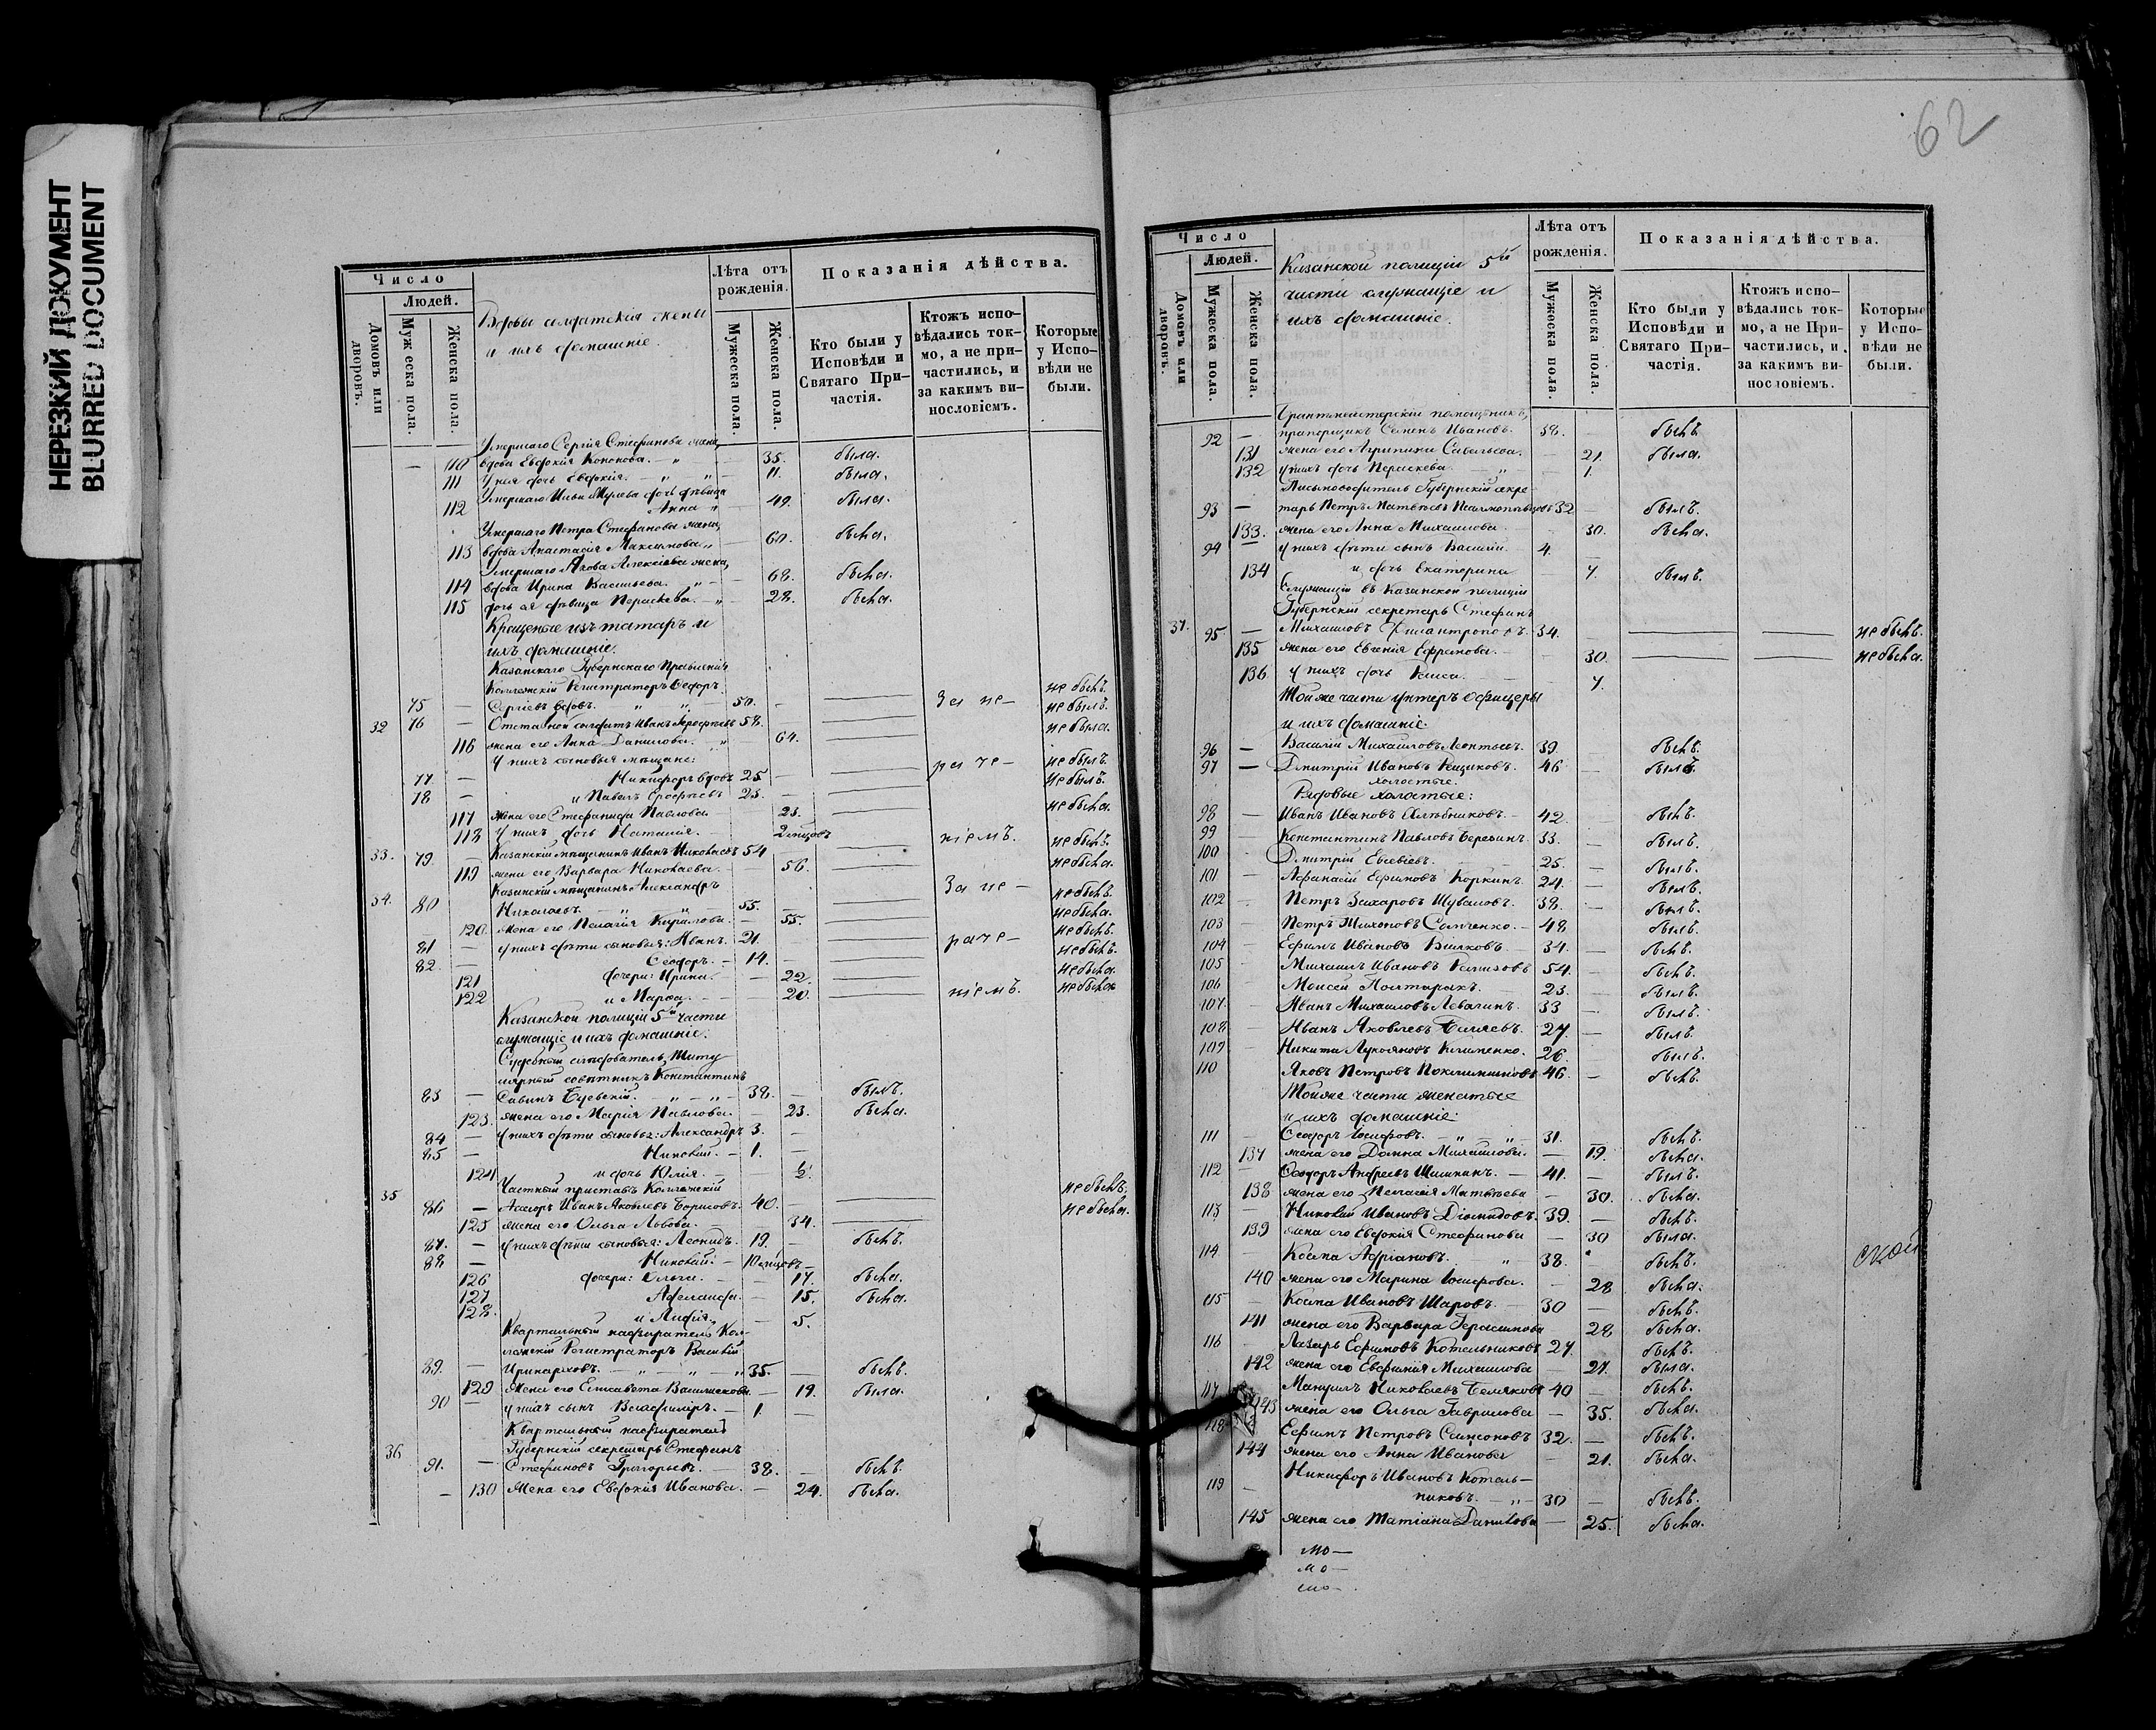 НЕРЕЗКИЙ ДОКУМЕНТ
BLURRED DOCUMENT
Число
Людей.
Домовъ или дворовъ.
Мужеска пола.
Женска пола.
Вдовы солдатскія жены
и ихъ домашніе.
Лѣта отъ рожденія.
Мужеска пола.
Женска пола.
Показанія дѣйства.
Кто были у Исповѣди и Святаго Причастія.
Ктожъ исповѣдались токмо, а не причастились, и за какимъ винословіемъ.
Которые у Исповѣди не были.
Умершаго Сергія Стефанова жена,
— 110 вдова Евдокія Кононова. — „ — 35. была.
111 У нея дочь Евдокія. — „ „ 11. была.
Умершаго Ильи дочь дѣвица
112 Анна „ 49. была.
Умершаго Петра Стефанова жена,
113 вдова Анастасія Максимова „ — 60. была.
Умершаго Якова Алексѣева жена,
114 вдова Ирина Васильева. „ — 68. была.
115 дочь ея дѣвица Параскева. — „ 28. была.
Крещеные изъ татаръ и
ихъ домашніе.
Казанскаго Губернскаго Правленія
Коллежскій Регистраторъ Ѳедоръ
75 — Сергіевъ вдовъ. „ „ 50. — не былъ.
32 76 — Отставной солдатъ Иванъ 58. — За не— не былъ.
116 жена его Анна Данилова. „ — 64. не была.
У нихъ сыновья мѣщане:
77 — Никифоръ вдовъ 25 — ра че— не былъ.
78 — и Павелъ Ерофѣевъ 23. — не былъ.
117 жена его Стефанида Павлова. 23. не была.
118 У нихъ дочь Наталія. — 2 мѣсяцовъ
33. 79. — Казанскій мѣщанинъ Иванъ Николаевъ 54 ніемъ. не былъ.
119 жена его Варвара Николаева. — — 56. — не была.
Казанскій мѣщанинъ Александръ
34. 80 Николаевъ. — „ „ 55. — За не— не былъ.
120. жена его Пелагія Кирилова. — 55. не была.
81 — у нихъ дѣти сыновья: Иванъ. 21. — не былъ.
82. — Ѳеодоръ. — 14. — раче— не былъ.
121 дочери: Ирина. — — 22. не была.
122 и Марѳа. — 20. ніемъ. не была.
Казанской полиціи 5й части
служащіе и ихъ домашніе.
Судебный слѣдователь, Титу
лярный совѣтникъ Константинъ
83 — Савинъ — „ — „ — 38. — былъ.
123. жена его Марія Павлова. — — 23. была.
84 — у нихъ дѣти сыновья: Александръ 3. —
85 — Николай. — 1. —
124 и дочь Юлія. — 6.
Частный приставъ Коллежскій
35 86 — Асесоръ Иванъ Яковлевъ Борисовъ. 40. не былъ.
125 жена его Ольга Львова. — 34. не была.
87. — у нихъ дѣти сыновья: Леонидъ. 19. — былъ.
88 — Николай. — 10 мѣсяцовъ —
126 дочери: Ольга. — — 17. была.
127 Аделаида. — 15. была.
128. и Лидія. — 5.
Квартальный надзиратель Кол—
лежскій Регистраторъ Василій
89. — Иринарховъ. — „ — „ — „ 35. — былъ.
129 жена его Елисавета — 19. была.
90 — у нихъ сынъ Владиміръ. — 1. —
Квартальный надзиратель
Губернскій секретарь Стефанъ
36 91. — Стефановъ Григорьевъ. — 38. — былъ.
— 130 жена его Евдокія Иванова. — 24. была.
62
Число
Людей.
Домовъ или дворовъ.
Мужеска пола.
Женска пола.
Казанской полиціи 5й
части служащіе и
ихъ домашніе.
Лѣта отъ рожденія.
Мужеска пола.
Женска пола.
Показанія дѣйства.
Кто были у Исповѣди и Святаго Причастія.
Ктожъ исповѣдались токмо, а не Причастились, и за какимъ винословіемъ.
Которые у Исповѣди не были.
помощникъ,
92 — прапорщикъ Семенъ Ивановъ. 38. — былъ.
131 жена его Агрипина Савельева. — 21. была.
132 у нихъ дочь Параскева. „ — 1.
Письмоводитель Губернскій секре—
93 — тарь Петръ Матвѣевъ 32 — былъ.
133. жена его Анна Михаилова. — 30. была.
94 — у нихъ дѣти сынъ Василій. 4. —
134 и дочь Екатерина 7. былъ.
Служащій въ Казанской полиціи
Губернскій секретарь Стефанъ
37. 95. — Михаиловъ Филантроповъ. 34. — не былъ.
135 жена его Евгенія Ефремова. — — 30. не была.
136 у нихъ дочь Раиса. — 7.
Той же части унтеръ офицеры
и ихъ домашніе.
96 — Василій Михаиловъ Леонтьевъ. 39. — былъ.
97 — Дмитрій Ивановъ 46 — былъ.
холостые.
Рядовые холостые:
98 — Иванъ Ивановъ Хлѣбниковъ. — 42. — былъ.
99 Константинъ Павловъ Березинъ. 33. — былъ.
100 Дмитрій Евсевіевъ. — 25. — былъ.
101 — Афанасій Ефимовъ Коркинъ. 24. — былъ.
102 — Петръ Захаровъ Шуваловъ. 38. — былъ.
103 — Петръ Тихоновъ — 48 былъ.
104 — Ефимъ Ивановъ — 34. — былъ.
105 — Михаилъ Ивановъ 54. — былъ.
106 — Моисей — 23. — былъ.
107. — Иванъ Михаиловъ 33 — былъ.
108 — Иванъ Яковлевъ Бѣляевъ. 27 — былъ.
109 — Никита Лукояновъ Клименко. 26. былъ.
110 Яковъ Петровъ 46. — былъ.
Той же части женатые
и ихъ домашніе:
111 — Ѳеодоръ Іосифовъ. — „ — „ 31. — былъ.
137 жена его Домна Михаилова. — 19. была.
112 — Ѳеодоръ Андреевъ Шишкинъ. — 41. — былъ.
138 жена его Пелагія Матвѣева — 30. была.
113 — Николай Ивановъ Діомидовъ. 39. — былъ.
139 жена его Евдокія Стефанова — 30 была.
114 — Косма Адріановъ. „ — 38. — былъ.
140 жена его Марина Іосифова. — 28 была.
ской
115 — Косма Ивановъ Шаровъ. — 30 — былъ.
141 жена его Варвара Герасимова 28 была.
116 — Лазарь Ефимовъ Котельниковъ 27. былъ.
142 жена его Евфимія Михаилова 27. была.
117 Мануилъ Николаевъ Беляковъ 40 — былъ.
143 жена его Ольга Гаврилова — 35. была.
118 — Ефимъ Петровъ Самсоновъ 32. — былъ.
144 жена его Анна Иванова — 21. была.
119 — Никифоръ Ивановъ Котель—
никовъ. — „ — 30 — былъ.
145 жена его Татіана Данилова — 25. была.
то—
мо—
што—